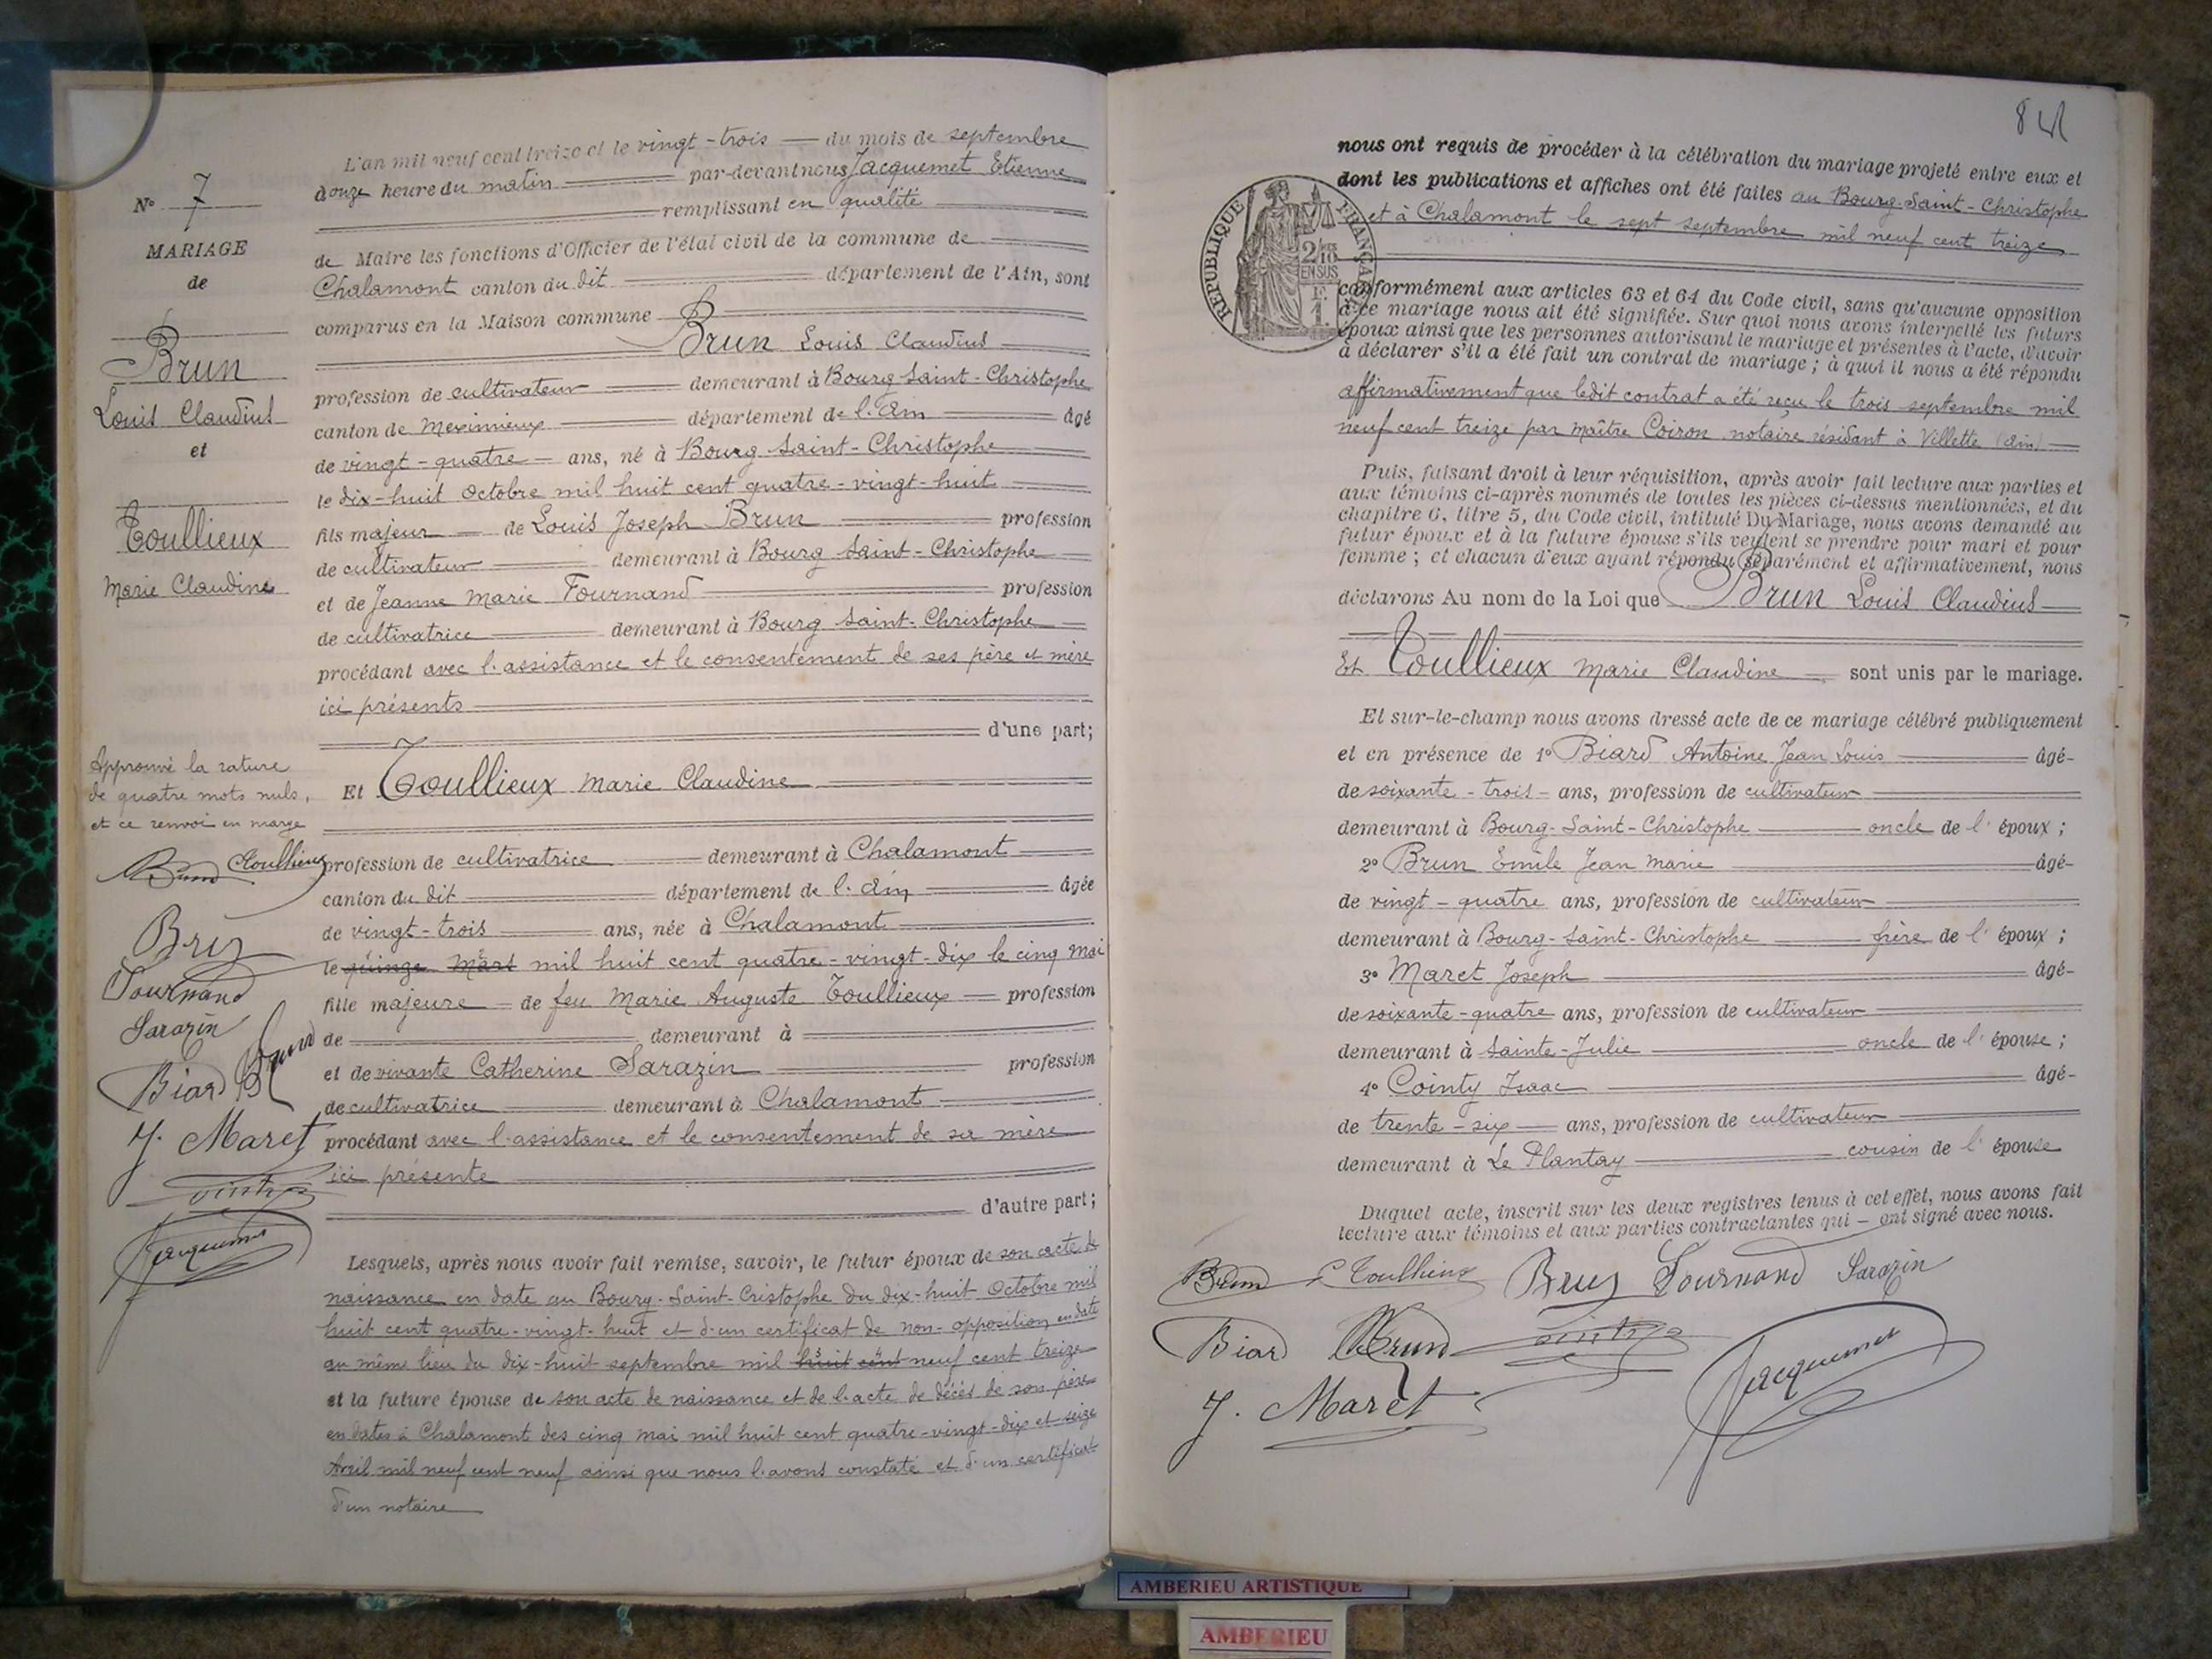 N° 7
MARIAGE
de
Brun
Louis Claudius
et
Toullieux
Marie Claudine
Approuvé la rature
de quatre mots nuls,
et ce renvoi en marge
Brun Toullieux
Brun
Fournand
Sarazin
Biard Brun
J. Maret
Cointy
Jacquemet
L'an mil neuf cent treize et le vingt-trois du mois de septembre
douze heure du matin par-devant nous Jacquemet Etienne
remplissant en qualité
de Maire les fonctions d'Officier de l'état civil de la commune de
Chalamont canton du dit département de l'Ain, sont
comparus en la Maison commune
Brun Louis Claudius
profession de cultivateur demeurant à Bourg Saint-Christophe
canton de Meximieux département de l'Ain âgé
de vingt-quatre ans, né à Bourg Saint-Christophe
le dix-huit Octobre mil huit cent quatre-vingt-huit
fils majeur de Louis Joseph Brun profession
de cultivateur demeurant à Bourg Saint-Christophe
et de Jeanne Marie Fournand profession
de cultivatrice demeurant à Bourg Saint-Christophe
procédant avec l'assistance et le consentement de ses père et mère
ici présents
d'une part;
Et Toullieux Marie Claudine
profession de cultivatrice demeurant à Chalamont
canton du dit département de l'Ain âgée
de vingt-trois ans, née à Chalamont
le quinze Mars mil huit cent quatre-vingt-dix le cinq Mai
fille majeure de feu Marie Auguste Toullieux profession
de demeurant à
et de vivante Catherine Sarazin profession
de cultivatrice demeurant à Chalamont
procédant avec l'assistance et le consentement de sa mère
ici présente
d'autre part;
Lesquels, après nous avoir fait remise, savoir, le futur époux de son acte de
naissance en date au Bourg-Saint-Cristophe du dix-huit Octobre mil
huit cent quatre-vingt-huit et d'un certificat de non-opposition en date
au même lieu du dix-huit septembre mil huit cent neuf cent treize
et la future épouse de son acte de naissance et de l'acte de décès de son père
en dates à Chalamont des cinq mai mil huit cent quatre-vingt-dix et seize
Avril mil neuf cent neuf ainsi que nous l'avons constaté et d'un certificat
d'un notaire
84
nous ont requis de procéder à la célébration du mariage projeté entre eux et
dont les publications et affiches ont été faites au Bourg-Saint-Christophe
et à Chalamont le sept septembre mil neuf cent treize
REPUBLIQUE FRANÇAISE
2/10
EN SUS
F.
1.
conformément aux articles 63 et 64 du Code civil, sans qu'aucune opposition
à ce mariage nous ait été signifiée. Sur quoi nous avons interpellé les futurs
époux ainsi que les personnes autorisant le mariage et présentes à l'acte, d'avoir
à déclarer s'il a été fait un contrat de mariage ; à quoi il nous a été répondu
affirmativement que ledit contrat a été reçu le trois septembre mil
neuf cent treize par maître Coiron notaire résidant à Villette (Ain)
Puis, faisant droit à leur réquisition, après avoir fait lecture aux parties et
aux témoins ci-après nommés de toutes les pièces ci-dessus mentionnées, et du
chapitre 6, titre 5, du Code civil, intitulé Du Mariage, nous avons demandé au
futur époux et à la future épouse s'ils veulent se prendre pour mari et pour
femme ; et chacun d'eux ayant répondu séparément et affirmativement, nous
déclarons Au nom de la Loi que Brun Louis Claudius
Et Toullieux Marie Claudine sont unis par le mariage.
Et sur-le-champ nous avons dressé acte de ce mariage célébré publiquement
et en présence de 1° Biard Antoine Jean Louis âgé
de soixante-trois ans, profession de cultivateur
demeurant à Bourg-Saint-Christophe oncle de l'époux ;
2° Brun Emile Jean Marie âgé
de vingt-quatre ans, profession de cultivateur
demeurant à Bourg-Saint-Christophe frère de l'époux ;
3° Maret Joseph âgé
de soixante-quatre ans, profession de cultivateur
demeurant à Sainte-Julie oncle de l'épouse ;
4° Cointy Isaac âgé
de trente-six ans, profession de cultivateur
demeurant à Le Plantay cousin de l'épouse
Duquel acte, inscrit sur les deux registres tenus à cet effet, nous avons fait
lecture aux témoins et aux parties contractantes qui ont signé avec nous.
Brun C Toullieux Brun Fournand Sarazin
Biard Brun Cointy
J. Maret Jacquemet
AMBERIEU ARTISTIQUE
AMBERIEU